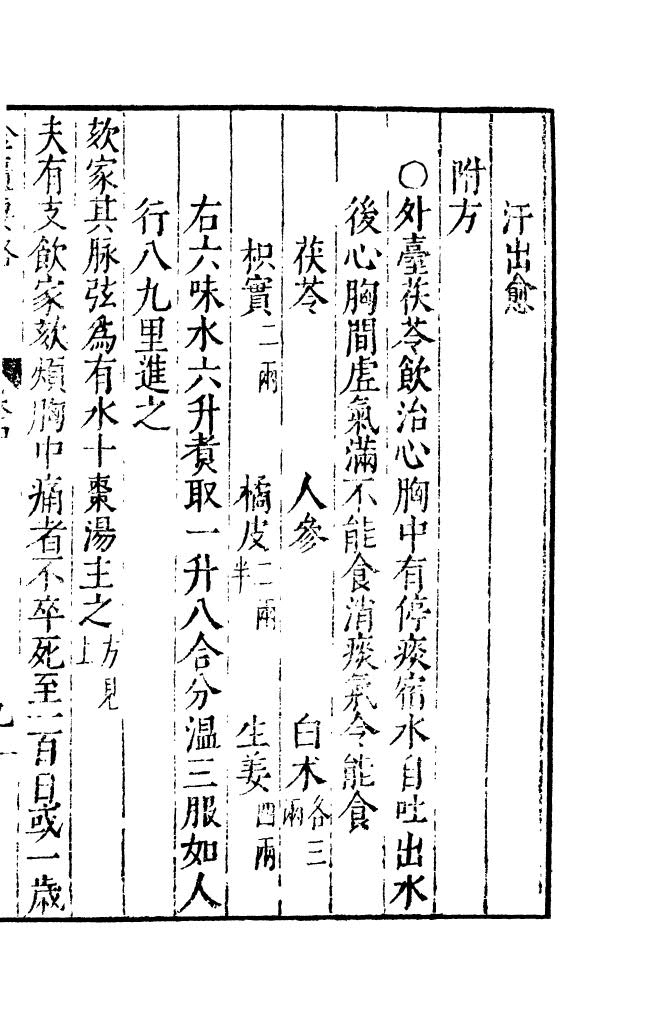 汗出愈
附方
○外臺茯苓飲治心胸中有停痰宿水自吐出水
後心胸間虛氣滿不能食消痰氣令能食
茯苓　人參　白朮各三兩
枳實二兩　橘皮二兩半　生姜四兩
右六味水六升煑取一升八合分溫三服如人
行八九里進之
欬家其脉弦為有水十棗湯主之方見上
夫有支飲家欬煩胸中痛者不卒死至一百日或一歲